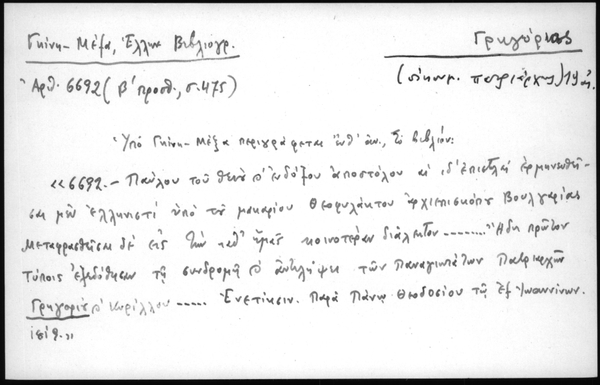 Γκίνη - Μέξα, Ἑλλην. Βιβλιογρ.
Γρηγόριος
Ἀρθ. 6692 (β' προσθ., σ. 475)
(οἰκουμ. πατριάρχης) 19 αἰ.
Ὑπό Γκίνη - Μέξα περιγράφεται ὑπ' ἀρ., τό βιβλίον:
«6692.- Παύλου τοῦ θείου κ' ἐνδόξου ἀποστόλου αἱ ιδ' ἐπιστολαί ἑρμηνευθεῖ-
σαι μέν ἑλληνιστί ὑπό τοῦ μακαρίου Θεοφυλάκτου ἀρχιεπισκόπου Βουλγαρίας
μεταφρασθεῖσαι δέ εἰς τήν καθ' ἡμᾶς κοινοτέραν διάλεκτον -------- Ἤδη πρῶτον
τύποις ἐξεδόθησαν τῇ συνδρομῇ κ' ἀντιλήψει τῶν Παναγιωτάτων Πατριαρχῶν
Γρηγορίου κ' Κυρίλλου ----- Ἐνετίησιν. Παρά Πάνῳ Θεοδοσίου τῷ ἐξ Ἰωαννίνων.